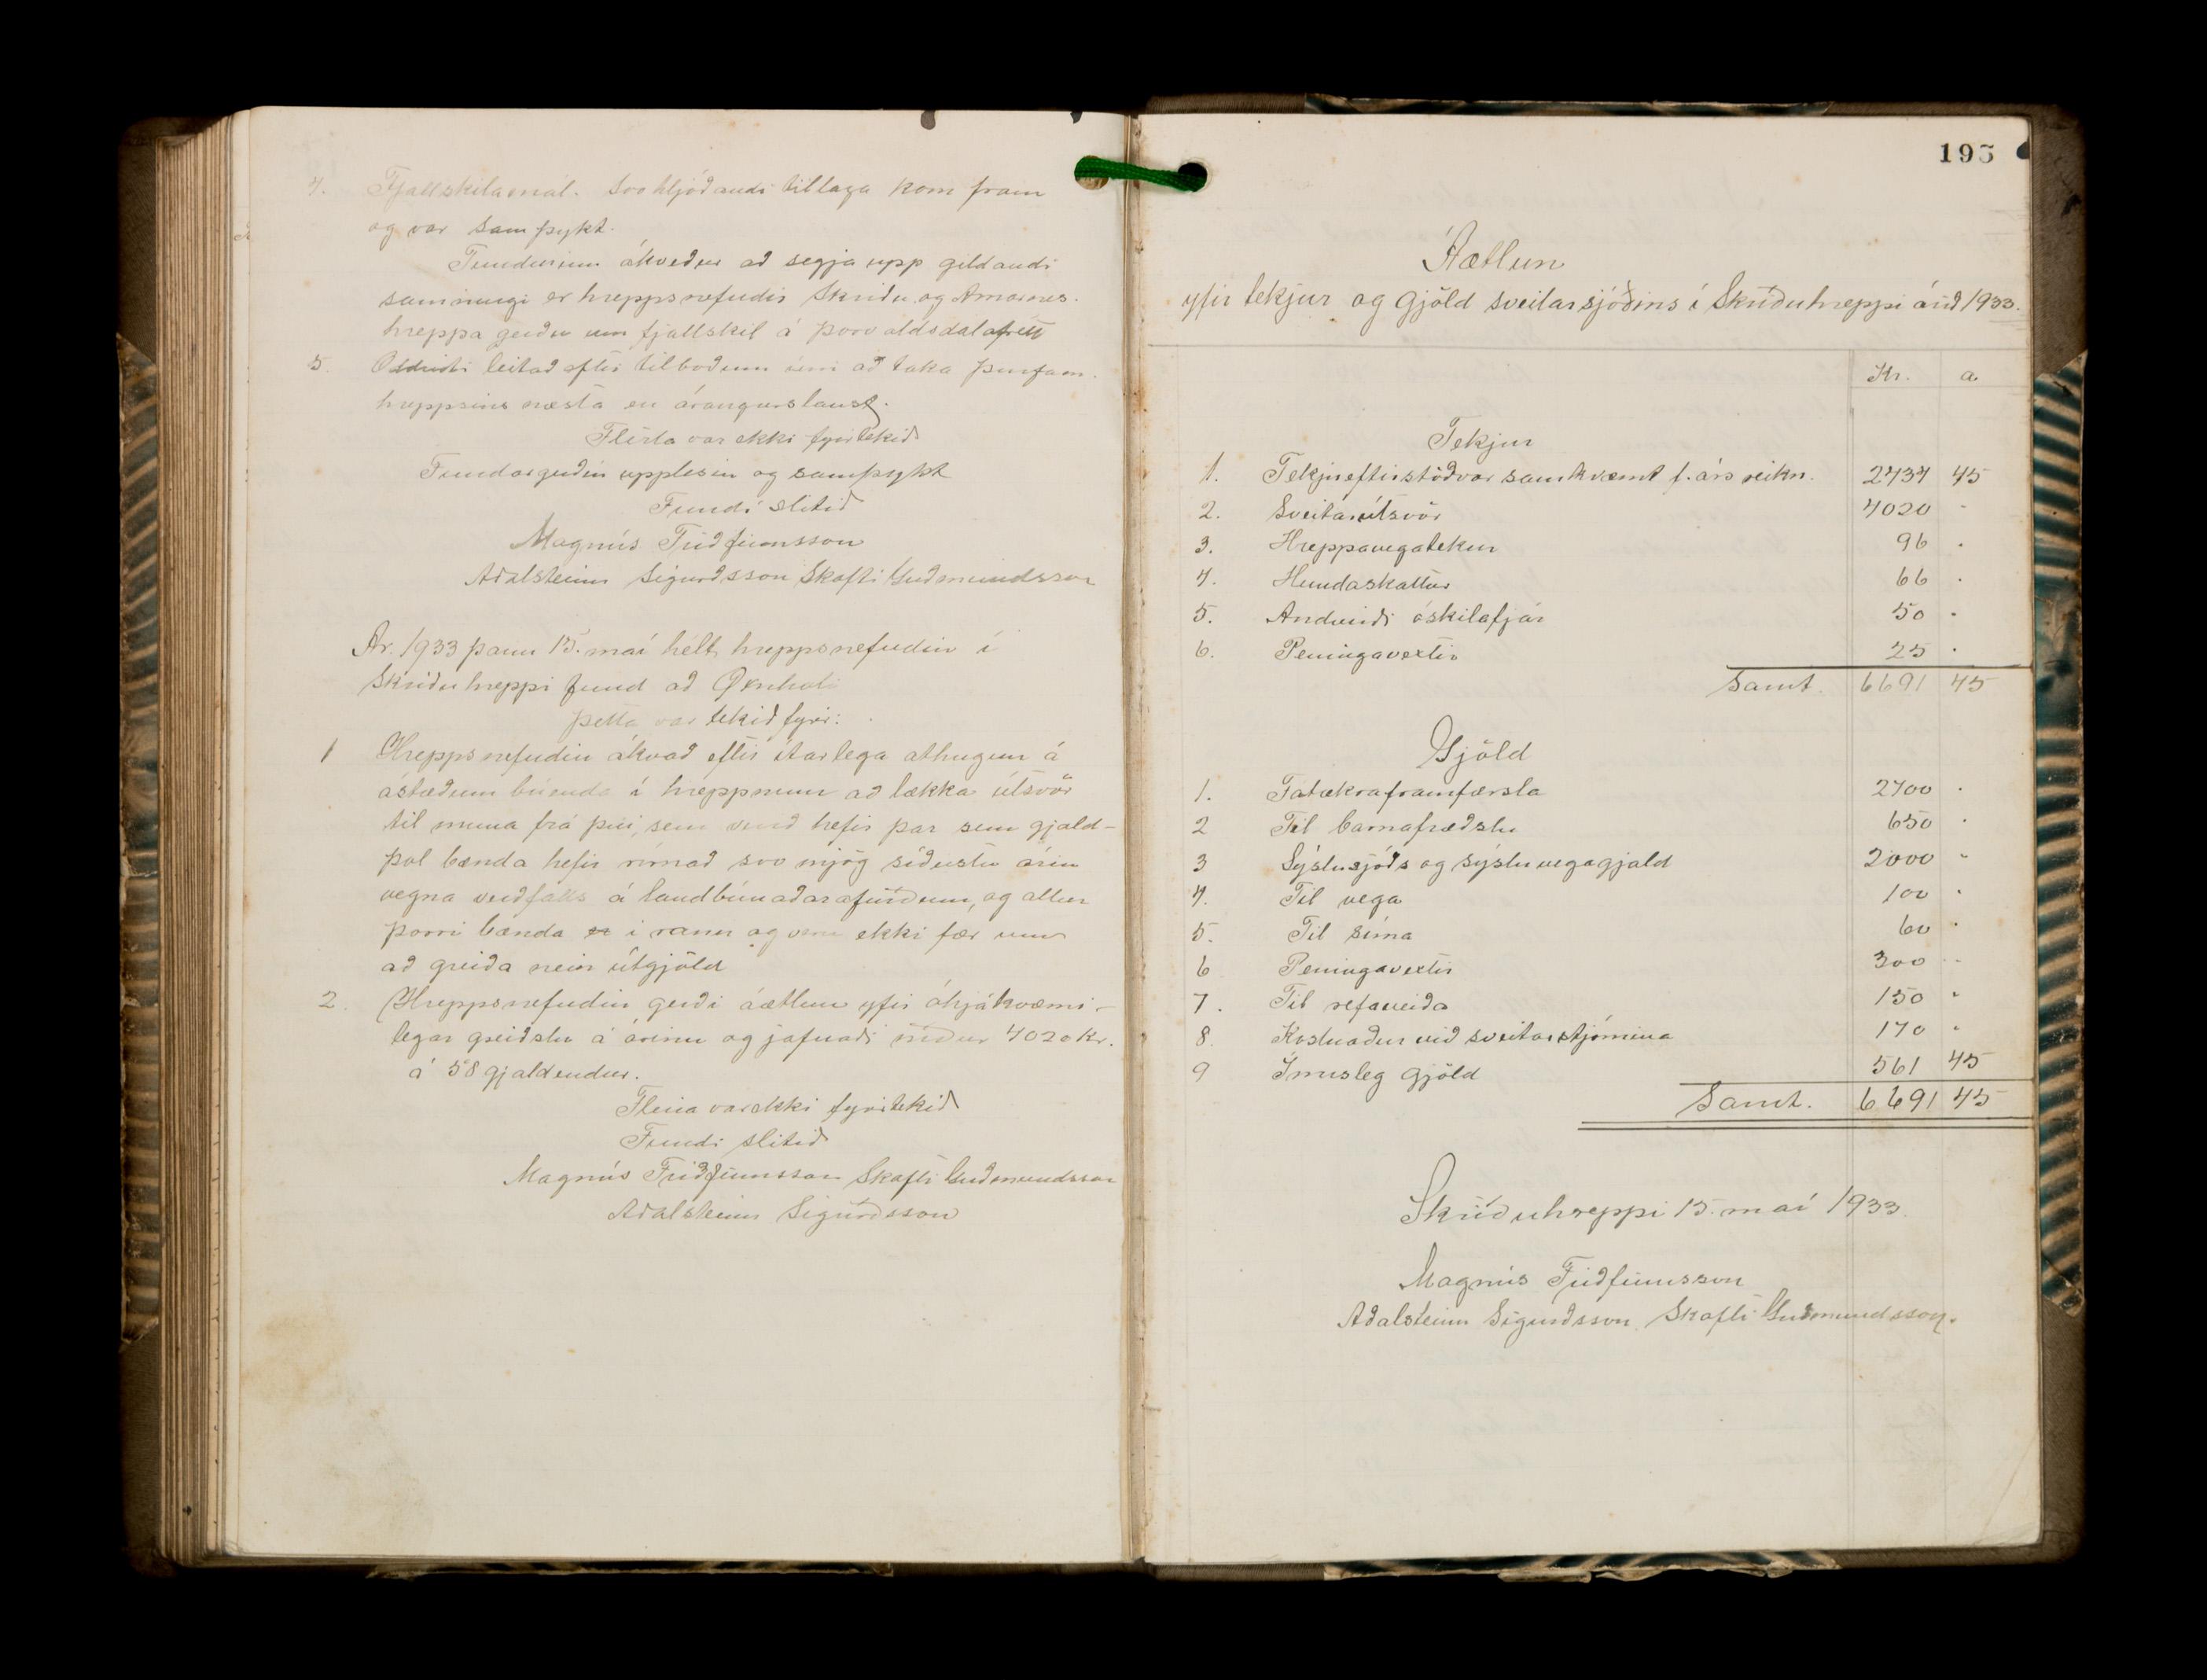 4. Fjallskilamál. Svohljóðandi tillaga kom fram
og var samþykt.
Fundurinn ákveður að segja upp gildandi
samningi er hreppsnefndir Skriðu og Arnarnes-
hreppa gerðu um fjallskil á Þorvaldsdalafrétt
5. Oddviti leitað eftir tilboðum um að taka þurfam.
hreppsins næsta en árangurslaust.
Fleira var ekki fyrirtekið
Fundargerðin upplesin og samþykt
Fundi slitið
Magnús Friðfinnsson
Aðalsteinn Sigurðsson Skafti Guðmundsson
Ár. 1933 þann 15. maí hélt hreppsnefndin í
Skriðuhreppi fund að Öxnhóli
þetta var tekið fyrir:
1 Hreppsnefndin ákvað eftir ítarlega athugun á
ástæðum búenda í hreppnum að lækka útsvör
til muna frá því, sem verið hefir þar sem gjald-
þol bænda hefir rírnað svo mjög síðustu árin
vegna verðfalls á landbúnaðarafurðum, og allur
þorri bænda er í raun og veru ekki fær um
að greiða nein útgjöld
2. Hreppsnefndin gerði áætlun yfir óhjákvæmi-
legar greiðslu á árinu og jafnaði niður 4020 kr.
á 58 gjaldendur.
Fleira var ekki fyrirtekið
Fundi slitið
Magnús Friðfinnsson Skafti Guðmundsson
Aðalsteinn Sigurðsson
195
Áætlun
yfir tekjur og gjöld sveitarsjóðsins í Skriðuhreppi árið 1933.
Kr. a.
Tekjur
1. Tekjueftirstöðvar samkvæmt f. árs reikn. 2434 45
2. Sveitarútsvör 4020 -
3. Hreppavegatekur 96 .
4. Hundaskattur 66 .
5. Andvirði óskilafjár 50 -
6. Peningavextir 25 .
Samt. 6691 45
Gjöld
1. Fátækraframfærsla 2700 .
2 Til barnafræðslu 650 .
3 Sýslusjóðs og sýsluvegagjald 2000 -
4. Til vega 100 .
5. Til síma 60 .
6 Peningavextir 300 -
7. Til refaveiða 150 -
8. Kostnaður við sveitarstjórnina 170 -
9 Ímisleg gjöld 561 45
Samt. 6691 45
Skriðuhreppi 15. maí 1933.
Magnús Friðfinnsson
Aðalsteinn Sigurðsson Skafti Guðmundsson.